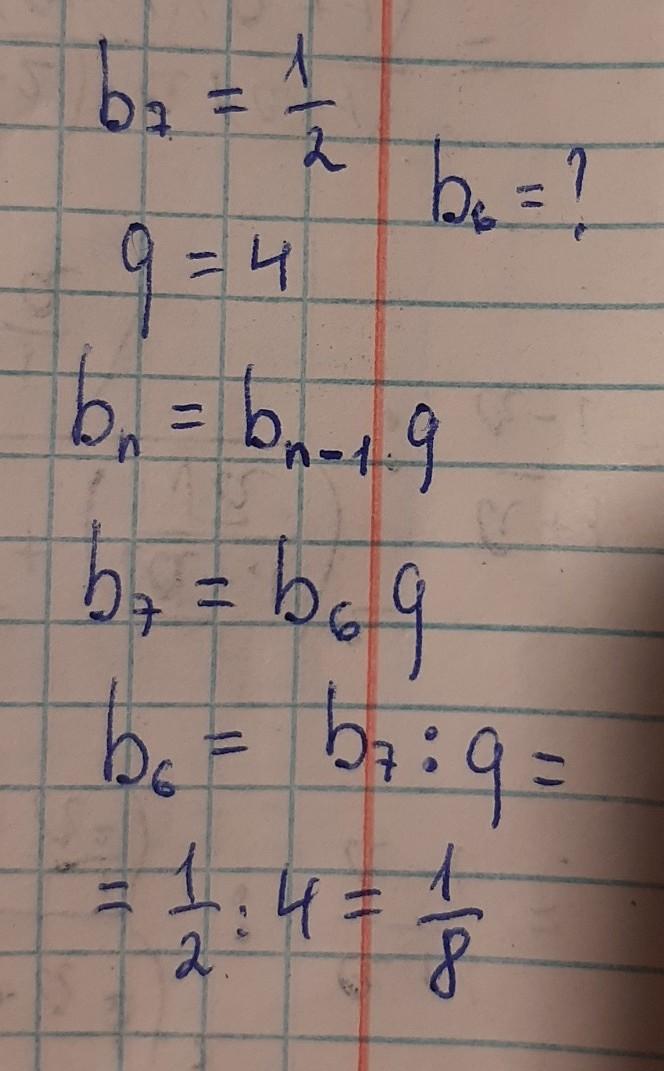 b₇ = 1/2
b₆ = ?
q = 4
bₙ = bₙ₋₁ · q
b₇ = b₆ q
b₆ = b₇ : q =
= 1/2 : 4 = 1/8